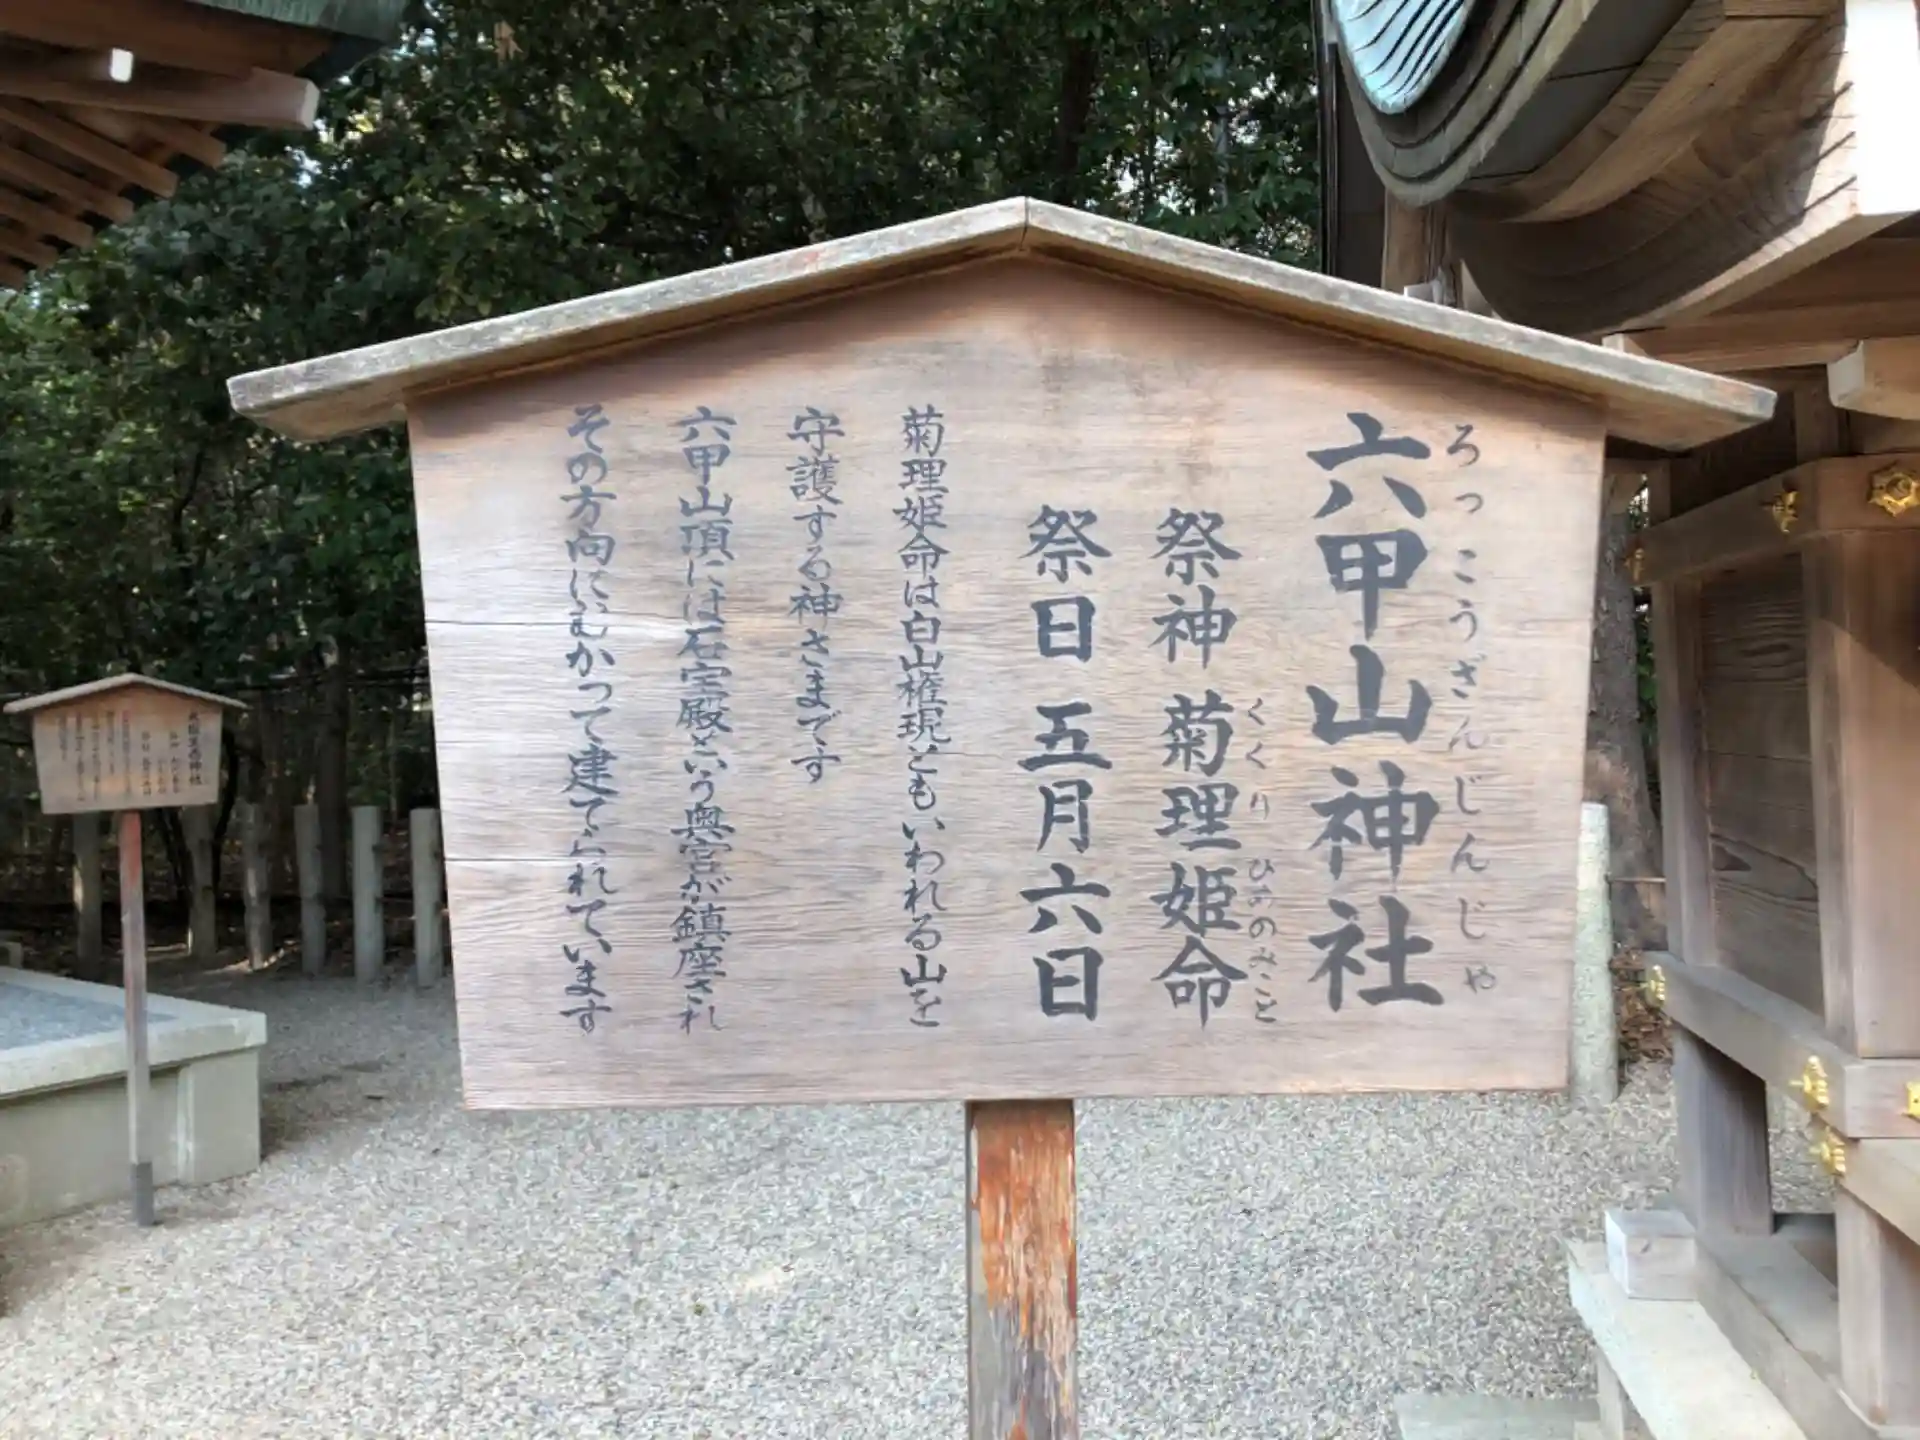 六甲山神社
ろっこうざんじんじゃ
祭神 菊理姫命
くくりひめのみこと
祭日 五月六日
菊理姫命は白山権現ともいわれる山を
守護する神さまです
六甲山頂には石宝殿という奥宮が鎮座され
その方向にむかって建てられています